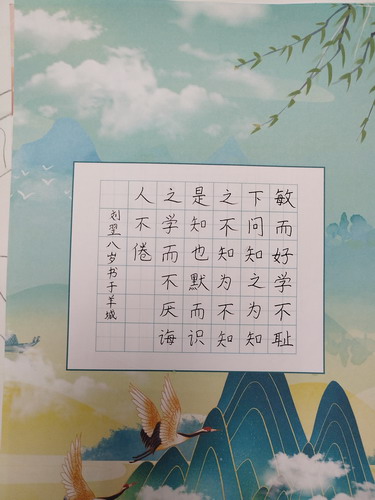 敏而好学不耻
下问知之为知
之不知为不知
是知也默而识
之学而不厌诲
人不倦
刘翌八岁书于羊城